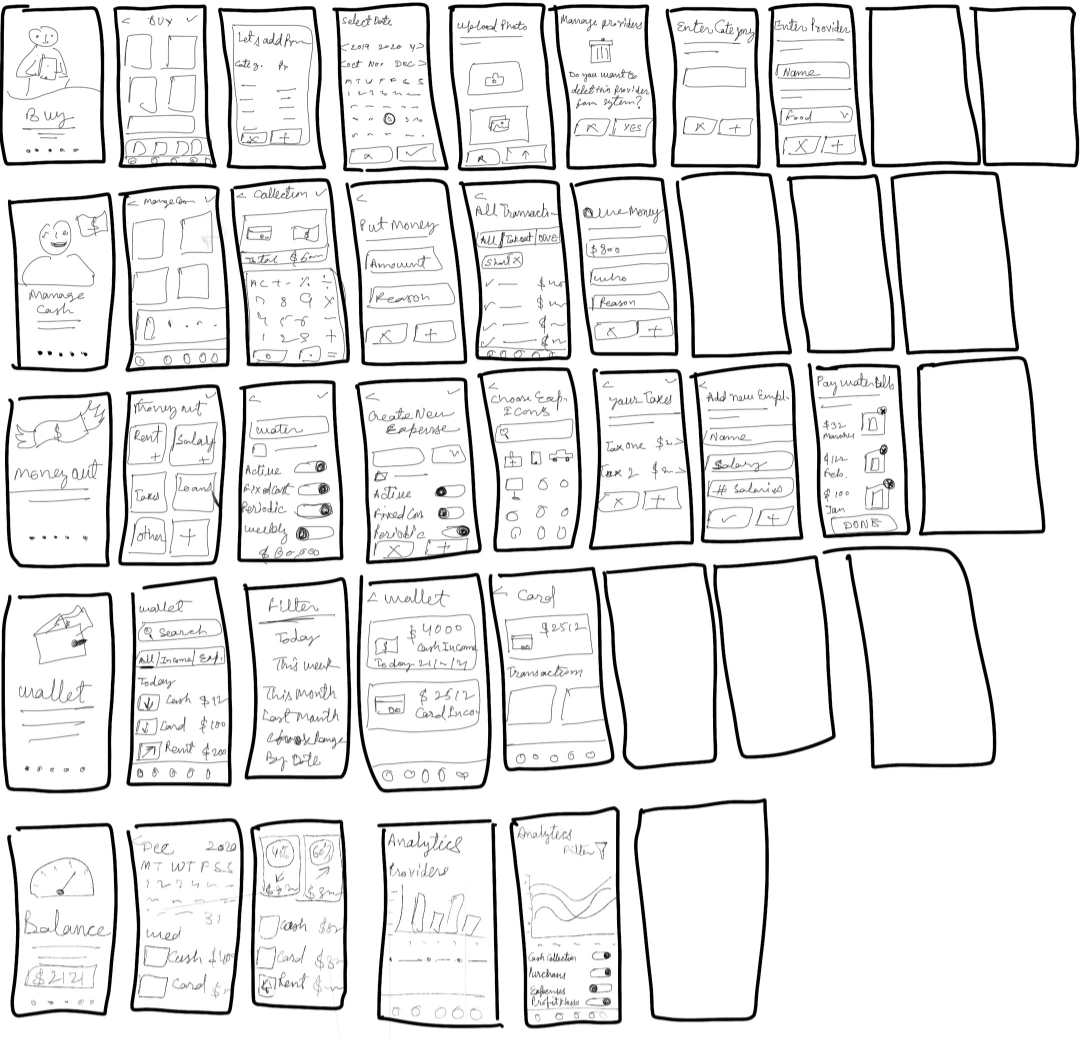 Buy
BUY
Let's add from
Categ.
Select Date
< 2019 2020
Oct Nov DEC >
M T W T F S S
Upload Photo
Manage providers
Do you want to
delet this provider
from system?
X YES
Enter Category
X +
Enter Provider
Name
Food
X +
$
Manage
Cash
< Collection
Total
AC + - % ÷
7 8 9 X
4 5 6 -
1 2 3 +
=
<
Put Money
Amount
Reason
X +
All Transacti-
All
Short X
Money
$800
who
Reason
X +
$
money out
Money out
Rent
+
Salary
+
Taxes
Loans
other
+
<
water
Active
Fixed cost
Periodic
weekly
$80,000
<
Create New
Expense
Active
Fixed Cos
Periodic
X +
<
Choose Exp.
Icons
<
your Taxes
Tax one
Tax 2
X +
<
Add new Empl.
Name
Salary
# Salaries
+
Pay water Bills
$32
March
$122
Feb.
$100
Jan
DONE
wallet
wallet
Search
All/Income/Exp.
Today
Cash $12
Card $100
Rent $200
Filter
Today
This week
This Month
Last Month
Choose Range
By Date
< wallet
$
$4000
Cash Income
Today
$2512
Card Inco
< Card
$2512
Transaction
Balance
$2121
Dec 2020
M T W T F S S
31
wed
Cash
Card $
40%
60%
Cash
Card
Rent
Analytics
Providers
Analytics
Filter
Cash Collection
Purchase
Expenses